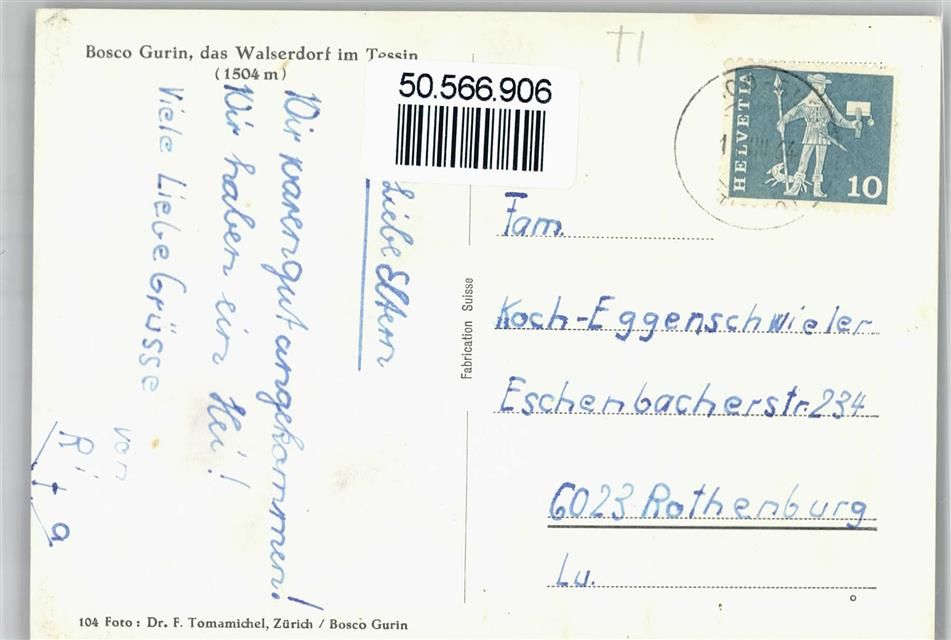 Bosco Gurin, das Walserdorf im Tessin
(1504 m)
50.566.906
HELVETIA
10
Liebe Eltern
Wir waren gut angekommen!
Wir haben ein Hei!
Viele Liebe Grüsse
von
Ri
ta
Fam.
Koch-Eggenschwieler
Eschenbacherstr. 234
6023 Rothenburg
Lu.
Fabrication Suisse
104 Foto: Dr. F. Tomamichel, Zürich / Bosco Gurin